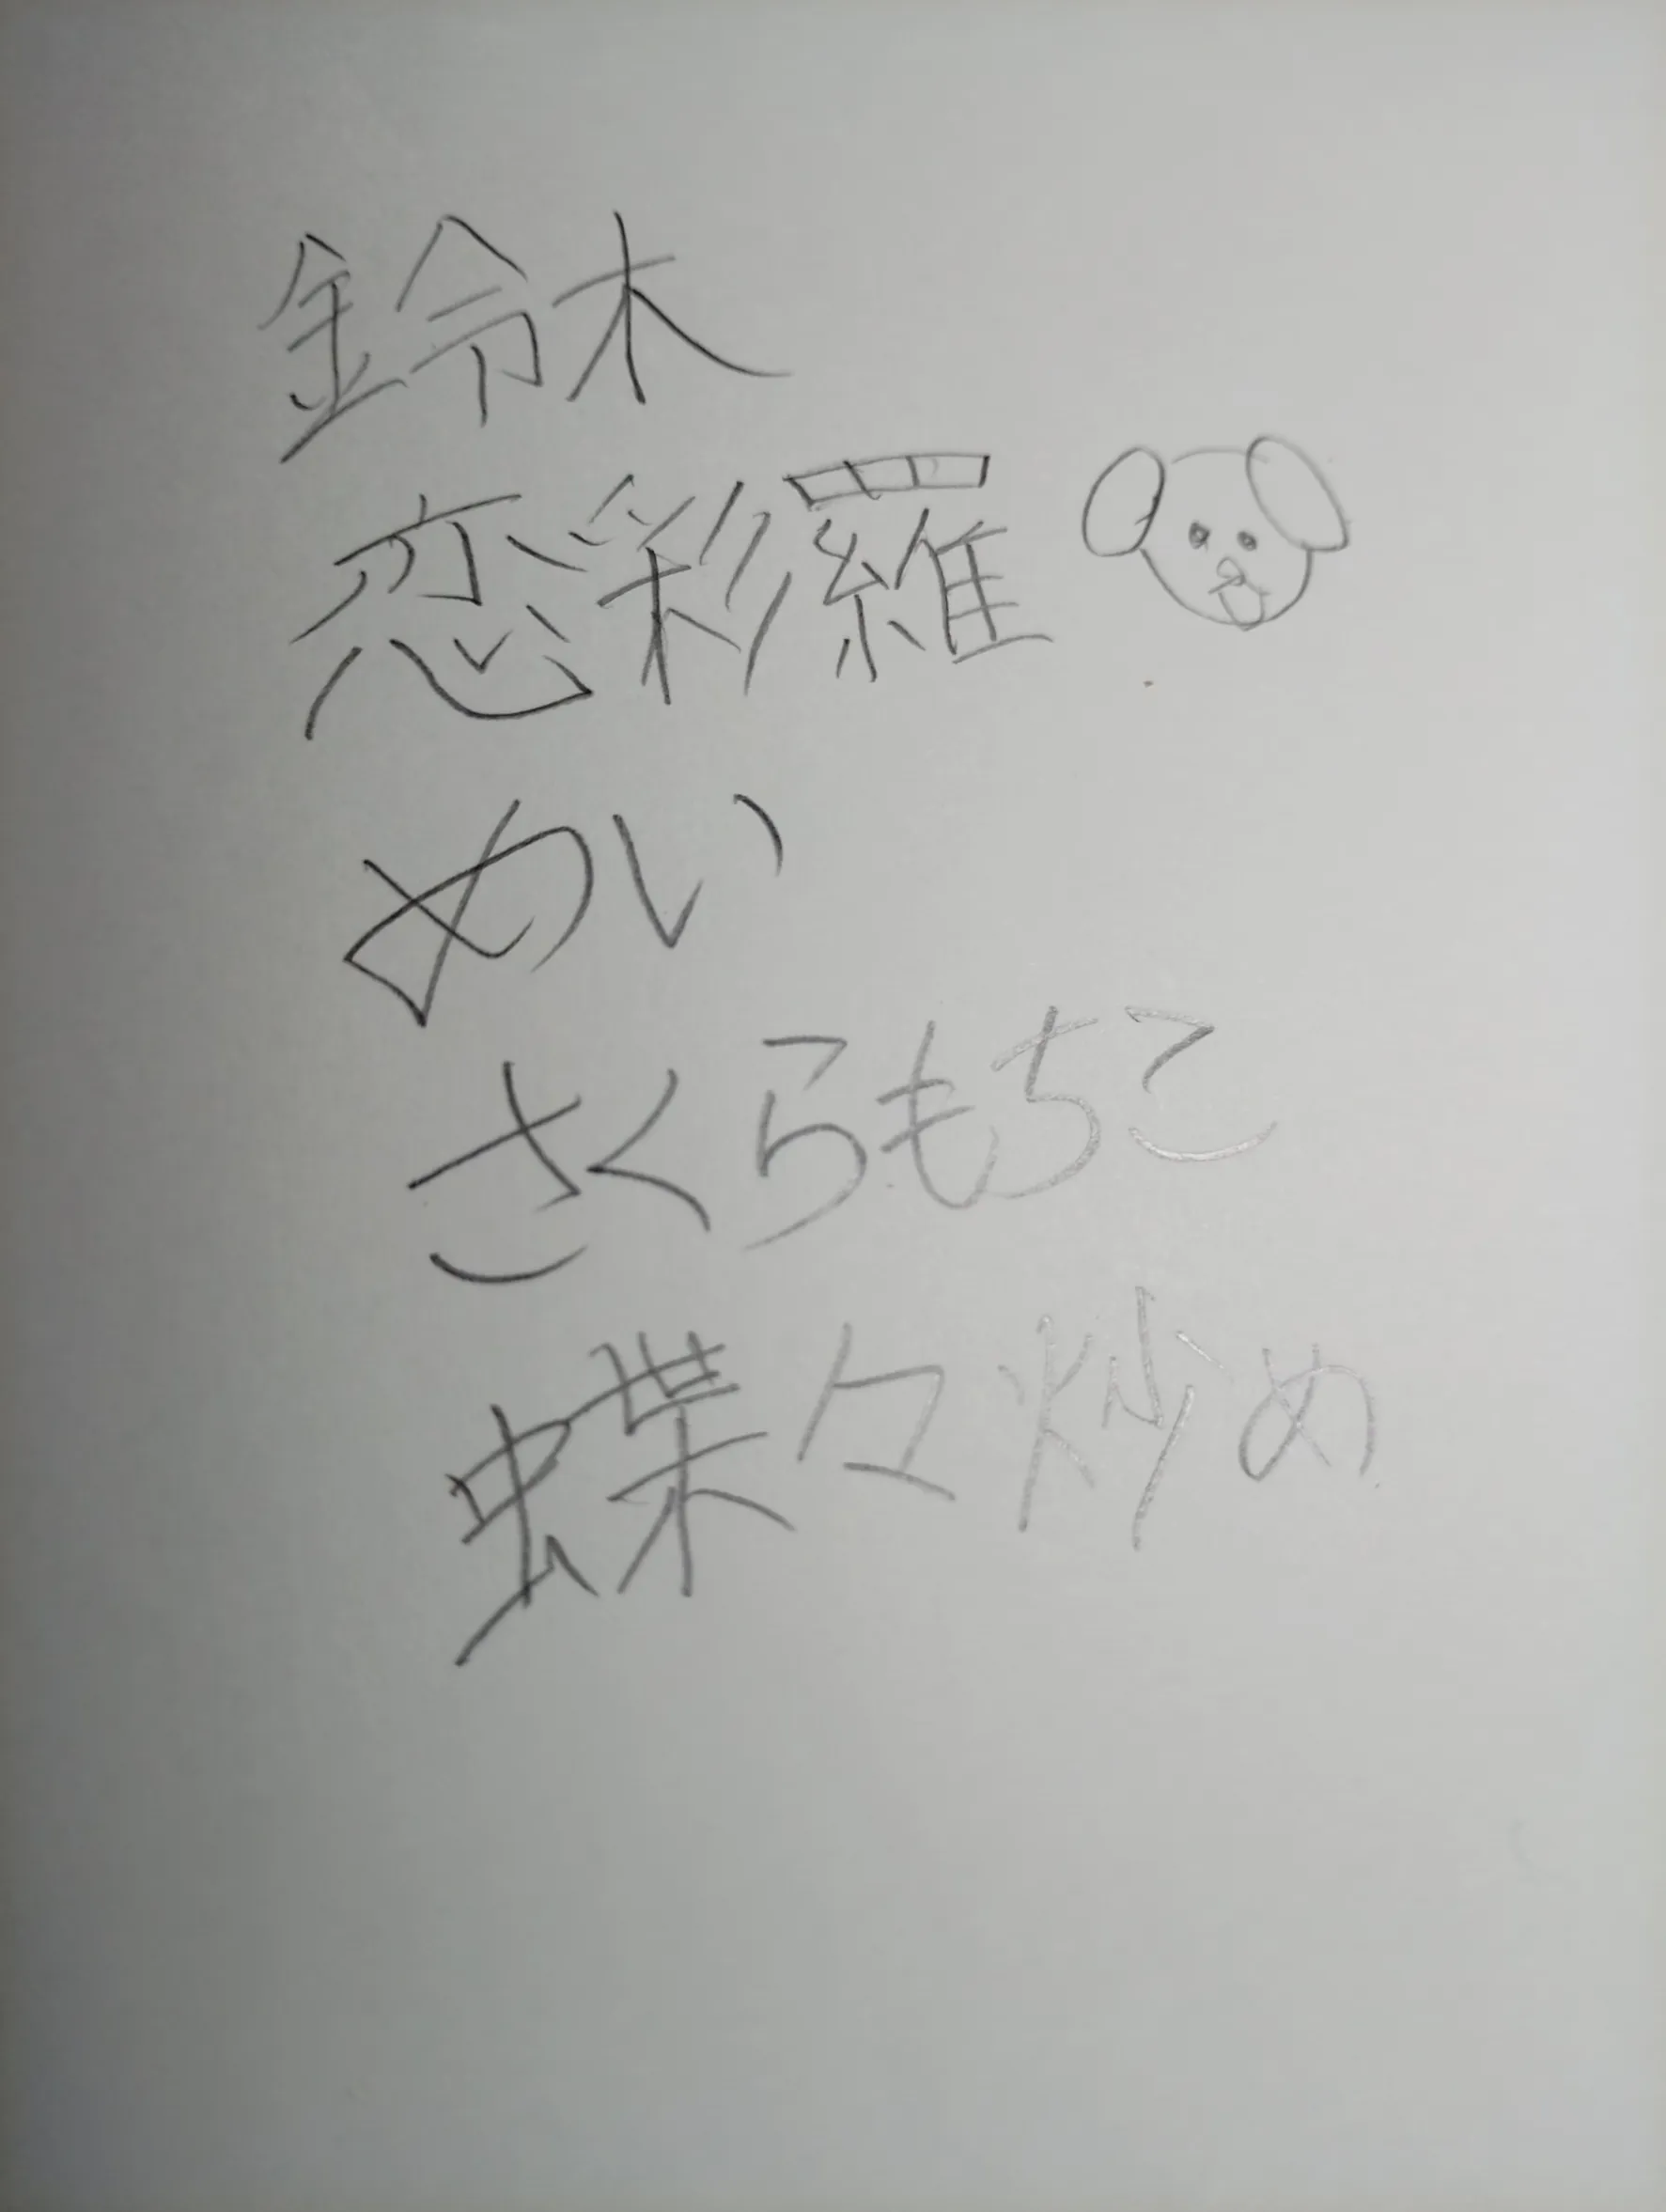 鈴木
恋彩羅
めい
さくらもちこ
蝶々炒め